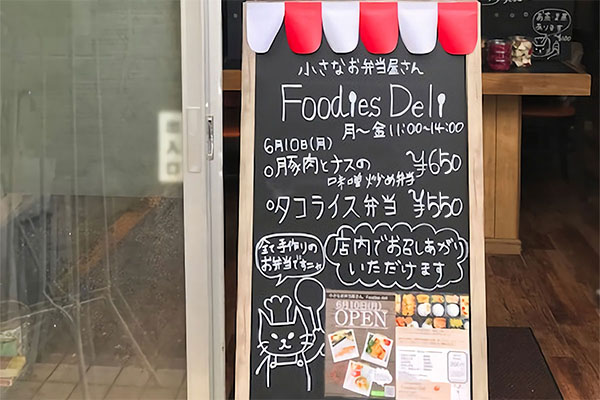 小さなお弁当屋さん
Foodies Deli
月〜金 11:00〜14:00
6月10日(月)
豚肉とナスの
味噌炒め弁当
¥650
タコライス弁当 ¥550
全て手作りの
お弁当ですニャ
店内でお召しあがり
いただけます
小さなお弁当屋さん Foodies deli
6月10日(月)
OPEN